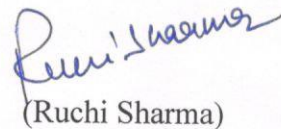 Ruchi Sharma
(Ruchi Sharma)